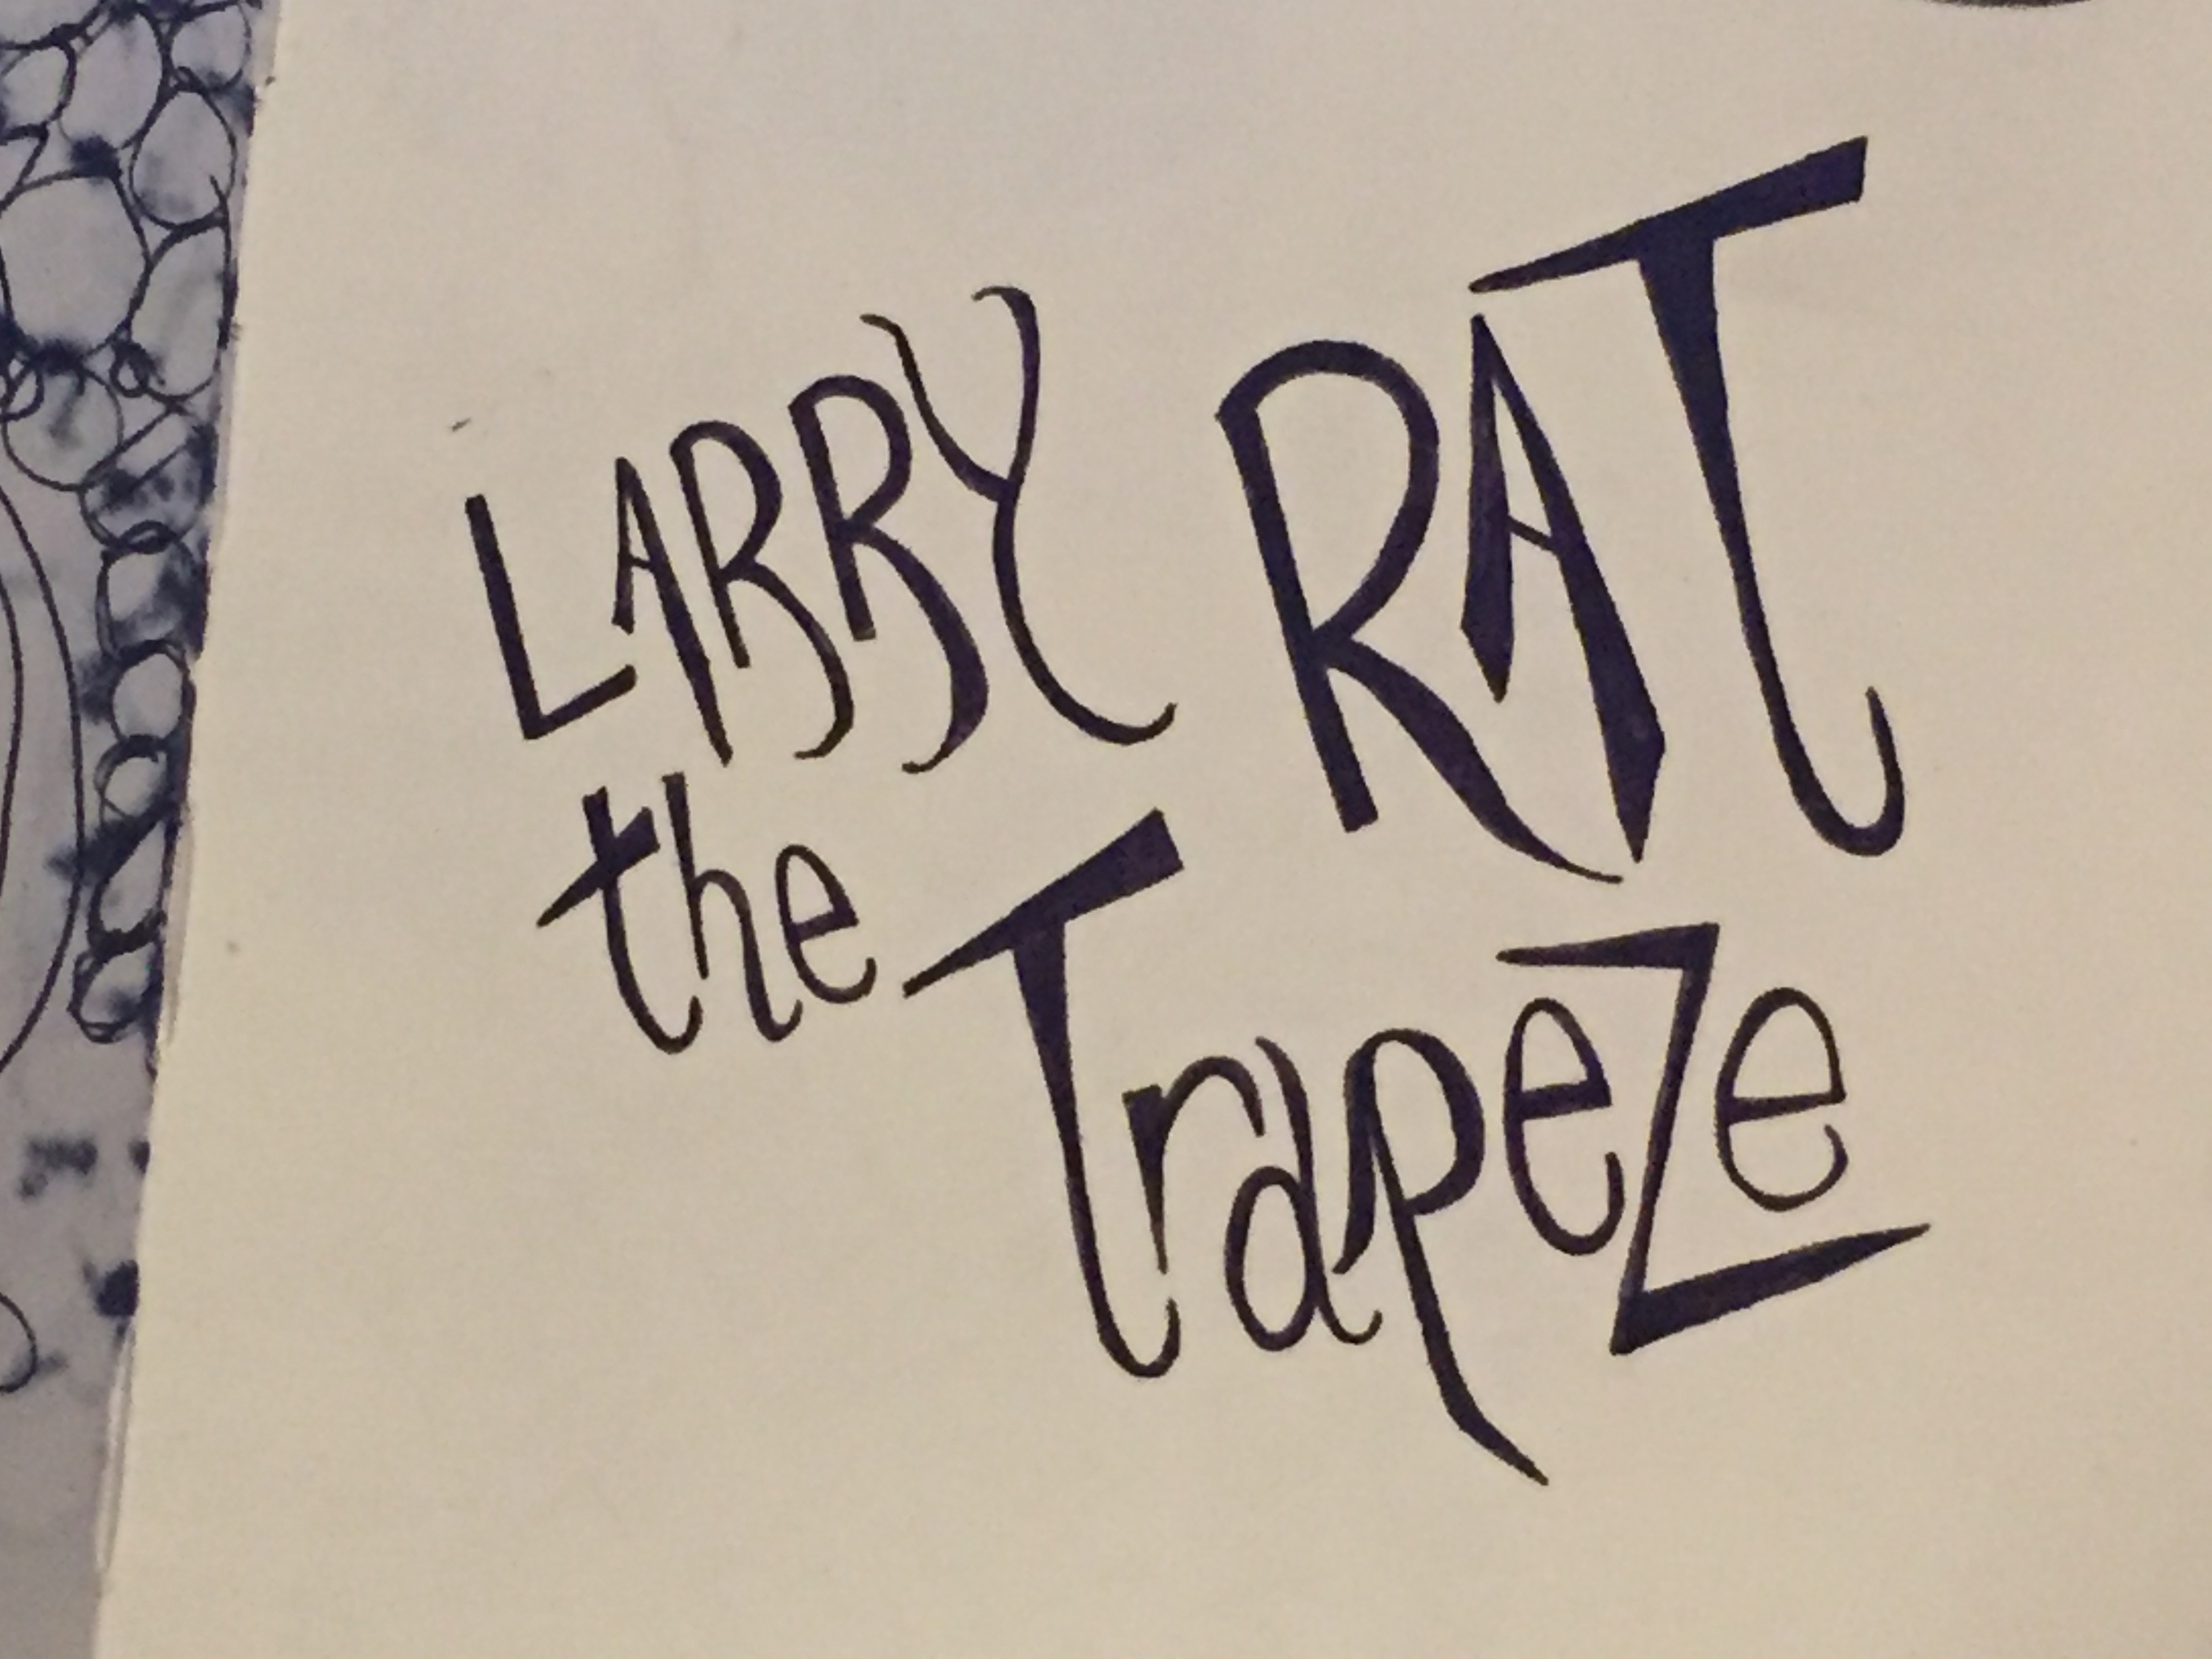 LARRY RAT
the TrapeZe